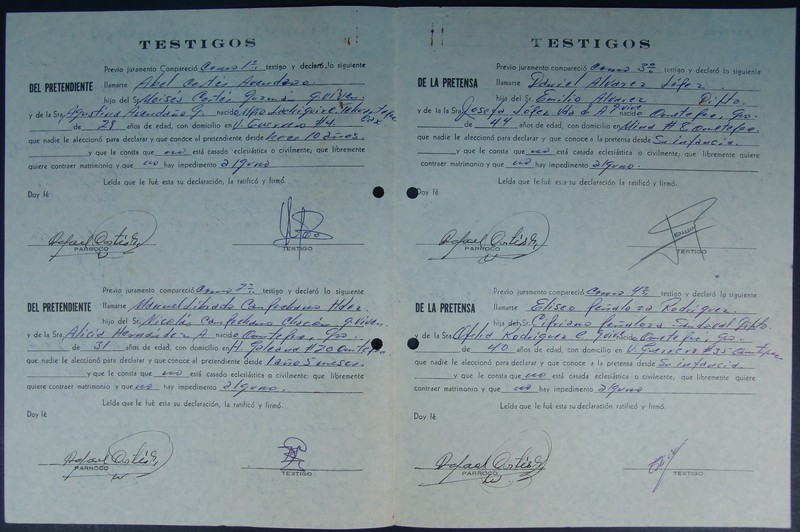 TESTIGOS
Previo juramento Compareció Como 1º testigo y declaró lo siguiente
DEL PRETENDIENTE llamarse Abel Cortés Avendaño
hijo del Sr. Moisés Cortés Guzmán q. Viven
y de la Sra. Agustina Avendaño G. nacido
de 28 años de edad, con domicilio en V. Guerrero
que nadie le aleccionó para declarar y que conoce al pretendiente desde hace 10 años
y que le consta que no está casado eclesiástica o civilmente; que libremente
quiere contraer matrimonio y que no hay impedimento alguno
Leída que le fué esta su declaración, la ratificó y firmó.
Doy fé
Rafael Ortiz
PARROCO
TESTIGO
Previo juramento compareció Como 2º testigo y declaró lo siguiente
DEL PRETENDIENTE llamarse Manuel Librado Canfechano Hdez.
hijo del Sr. Nicolás Canfechano Chacón q. Viven
y de la Sra. Alicia Hernández nacido Ometepec, Gro.
de 31 años de edad, con domicilio en H. Galeana #20 Ometepec
que nadie le aleccionó para declarar y que conoce al pretendiente desde 1 año 5 meses.
y que le consta que no está casado eclesiástica o civilmente: que libremente
quiere contraer matrimonio y que no hay impedimento alguno.
Leída que le fué esta su declaración, la ratificó y firmó.
Doy fé
Rafael Ortiz
PARROCO
TESTIGO
TESTIGOS
Previo juramento compareció Como 3º testigo y declaró lo siguiente
DE LA PRETENSA llamarse Daniel Alvarez López
hijo del Sr. Emilio Alvarez Difto.
y de la Sra. Josefa López Vda de A. Vive nacido Ometepec, Gro.
de 44 años de edad, con domicilio en Mina # Ometepec.
que nadie le aleccionó para declarar y que conoce a la pretensa desde Su infancia.
y que le consta que no está casada eclesiástica o civilmente; que libremente quiere
contraer matrimonio y que no hay impedimento alguno.
Leída que le fué esta su declaración, la ratificó y firmó.
Doy fé
Rafael Ortiz
PARROCO
TESTIGO
Previo juramento compareció Como 4º testigo y declaró lo siguiente
DE LA PRETENSA llamarse Eliseo Peñaloza Rodríguez
hijo del Sr. Cipriano Peñaloza Sandoval Difto
y de la Sra. Ofelia Rodríguez nacido Ometepec, Gro.
de 40 años de edad, con domicilio en V. Guerrero #35 Ometepec
que nadie le aleccionó para declarar y que conoce a la pretensa desde Su infancia.
y que le consta que no está casada eclesiástica o civilmente: que libremente
quiere contraer matrimonio y que no hay impedimento alguno
Leída que le fué esta su declaración, la ratificó y firmó.
Doy fé
Rafael Ortiz
PARROCO
TESTIGO